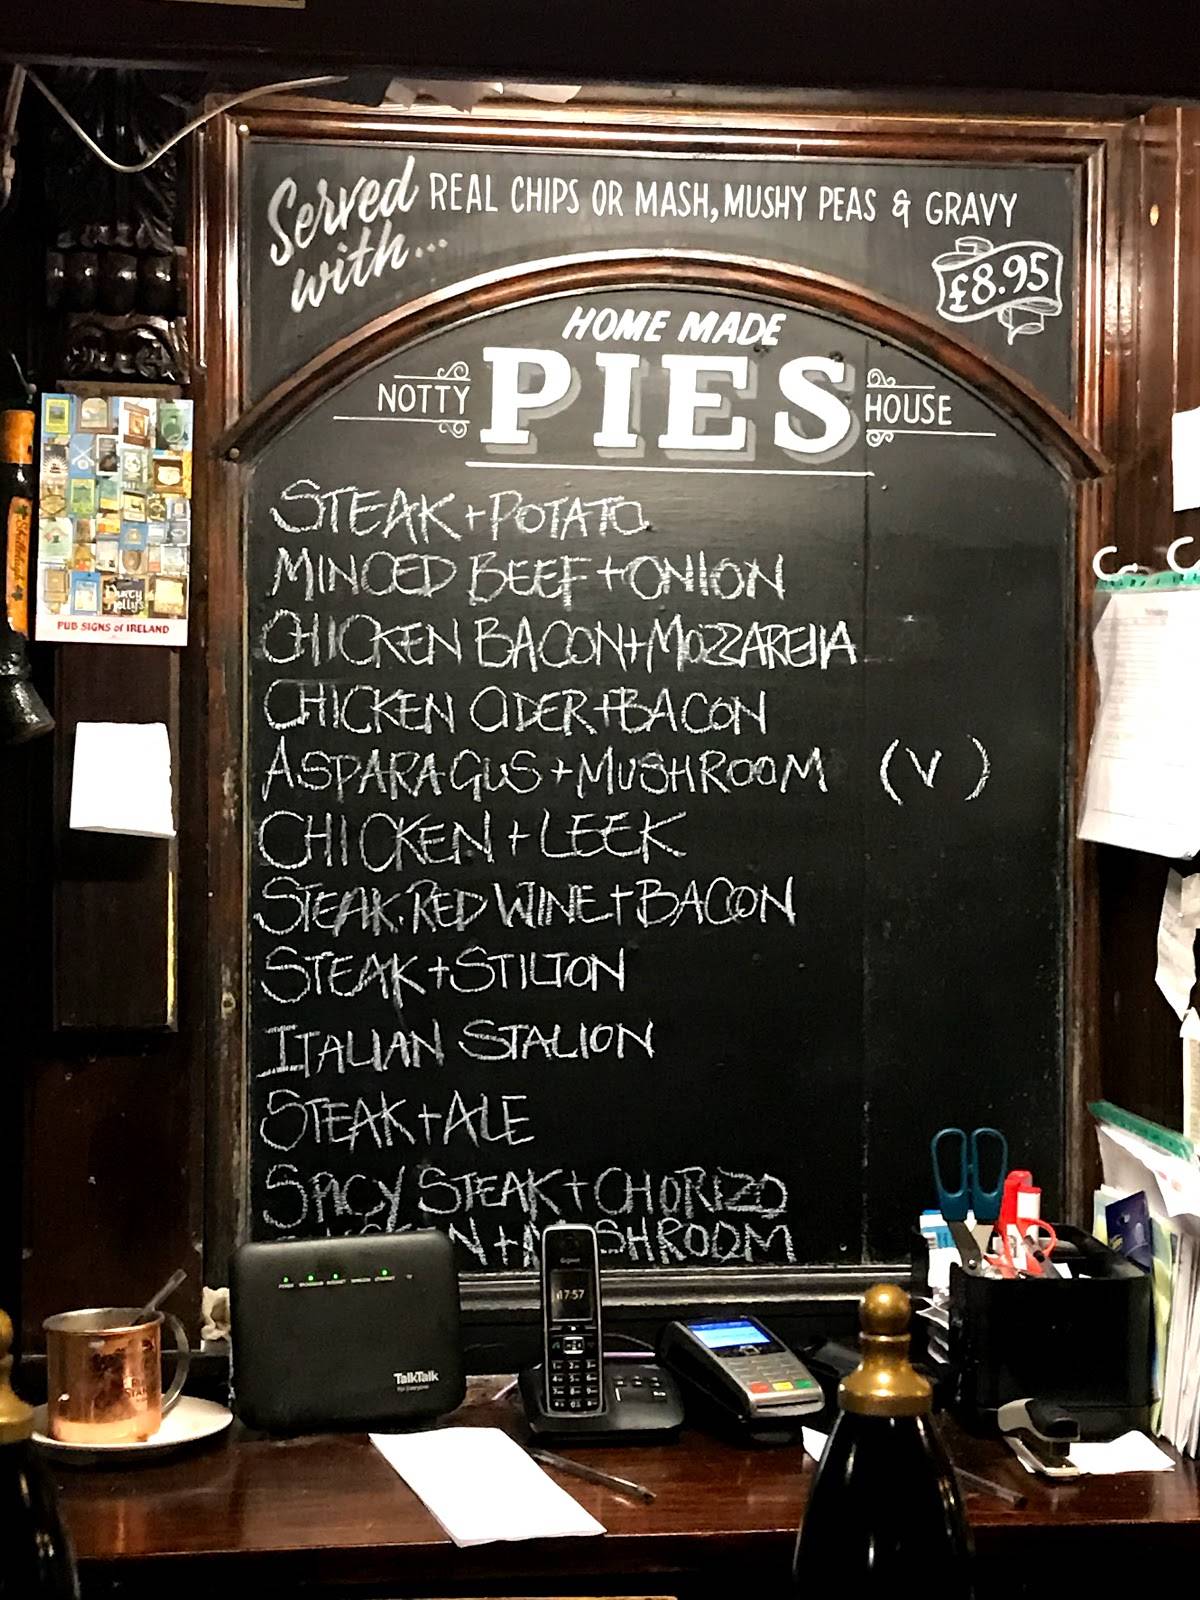 Served with...
REAL CHIPS OR MASH, MUSHY PEAS & GRAVY
£8.95
HOME MADE
NOTTY PIES HOUSE
STEAK + POTATO
MINCED BEEF + ONION
CHICKEN BACON + MOZZARELLA
CHICKEN CIDER + BACON
ASPARAGUS + MUSHROOM (V)
CHICKEN + LEEK
STEAK. RED WINE + BACON
STEAK + STILTON
ITALIAN STALION
STEAK + ALE
SPICY STEAK + CHORIZO
PUB SIGNS of IRELAND
Darcy Kelly's
Gigaset
17:57
TalkTalk
For Everyone